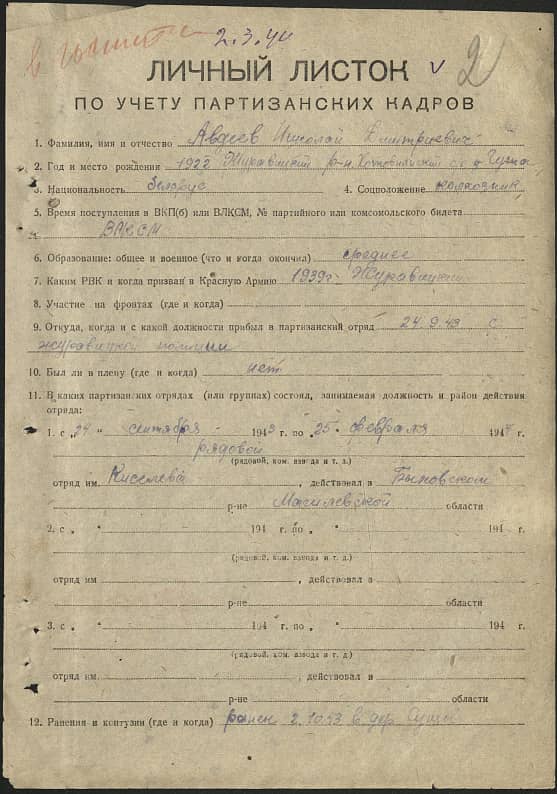 2.3.44
2
ЛИЧНЫЙ ЛИСТОК
ПО УЧЕТУ ПАРТИЗАНСКИХ КАДРОВ
1. Фамилия, имя и отчество Авдеев Николай Дмитриевич
2. Год и место рождения 1922 Журавичский р-н Хатовнский с/с
3. Национальность белорус 4. Соцположение колхозник
5. Время поступления в ВКП(б) или ВЛКСМ, № партийного или комсомольского билета
ВЛКСМ
6. Образование: общее и военное (что и когда окончил) среднее
7. Каким РВК и когда призван в Красную Армию 1939г. Журавицким
8. Участие на фронтах (где и когда)
9. Откуда, когда и с какой должности прибыл в партизанский отряд 24.9.43 с
журавицкой полиции
10. Был ли в плену (где и когда) нет
11. В каких партизанских отрядах (или группах) состоял, занимаемая должность и район действия
отряда:
1. с „24" сентября 1943 г. по „25" февраля 1944 г.
рядовой
(рядовой, ком. взвода и т. д.)
отряд им. Киселева, действовал в Быховском
р-не Магилевской области
2. с „ " 194 г. по „ " 194 г.
(рядовой, ком. взвода и т. д.)
отряд им , действовал в
р-не области
3. с „ " 194 г. по „ " 194 г.
(рядовой, ком. взвода и т. д.)
отряд им. , действовал в
р-не области
12. Ранения и контузии (где и когда) ранен 2.10.43 в дер.